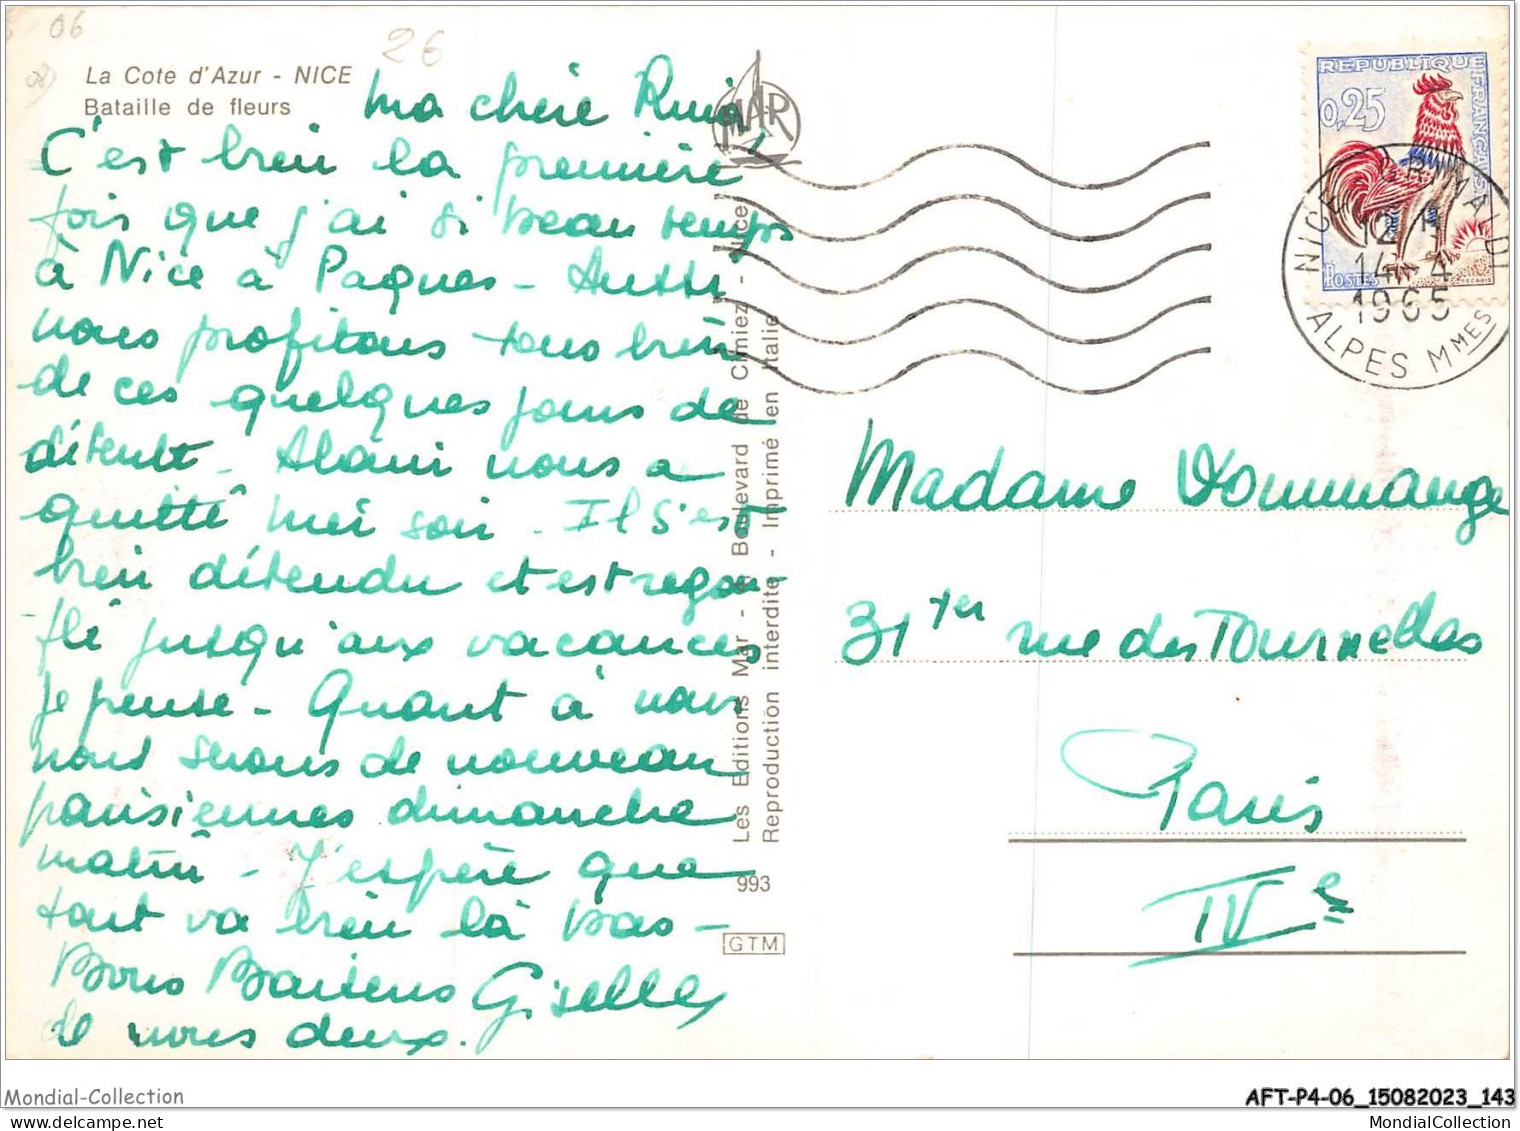 06
26
La Cote d'Azur - NICE
Bataille de fleurs
Ma chère
C'est bien la première
fois que j'ai si beau temps
à Nice à Paques - Aussi
nous profitons tous bien
de ces quelques jours de
détente - Alain nous a
quitté hier soir. Il s'est
bien détendu et est regon-
flé jusqu'aux vacances
je pense - Quant à nous
nous serons de nouveau
parisiennes dimanche
matin - J'espère que
tout va bien là bas -
Bons Baisers Giselle
de nous deux.
MAR
Les Editions Mar - Boulevard de Cimiez - Nice
Reproduction interdite - Imprimé en Italie
993
GTM
REPUBLIQUE FRANÇAISE
0,25
POSTES
NICE
12 H
14-4
1965
ALPES MMES
Madame Dommange
31 ter rue des Tournelles
Paris
IVe
Mondial-Collection
AFT-P4-06_15082023_143
https://www.delcampe.net
MondialCollection